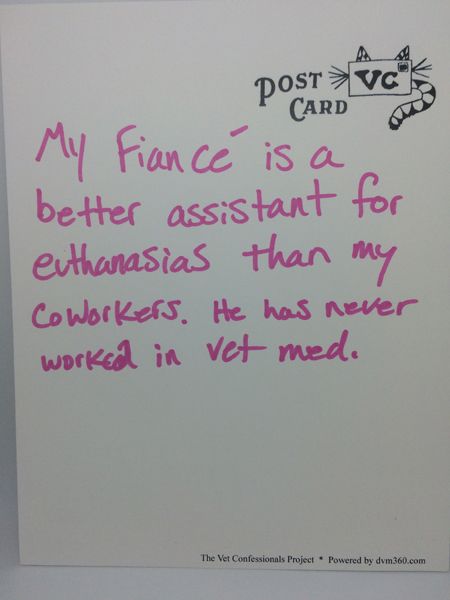 POST
CARD
VC
My Fiancé is a
better assistant for
euthanasias than my
coworkers. He has never
worked in vet med.
The Vet Confessionals Project * Powered by dvm360.com